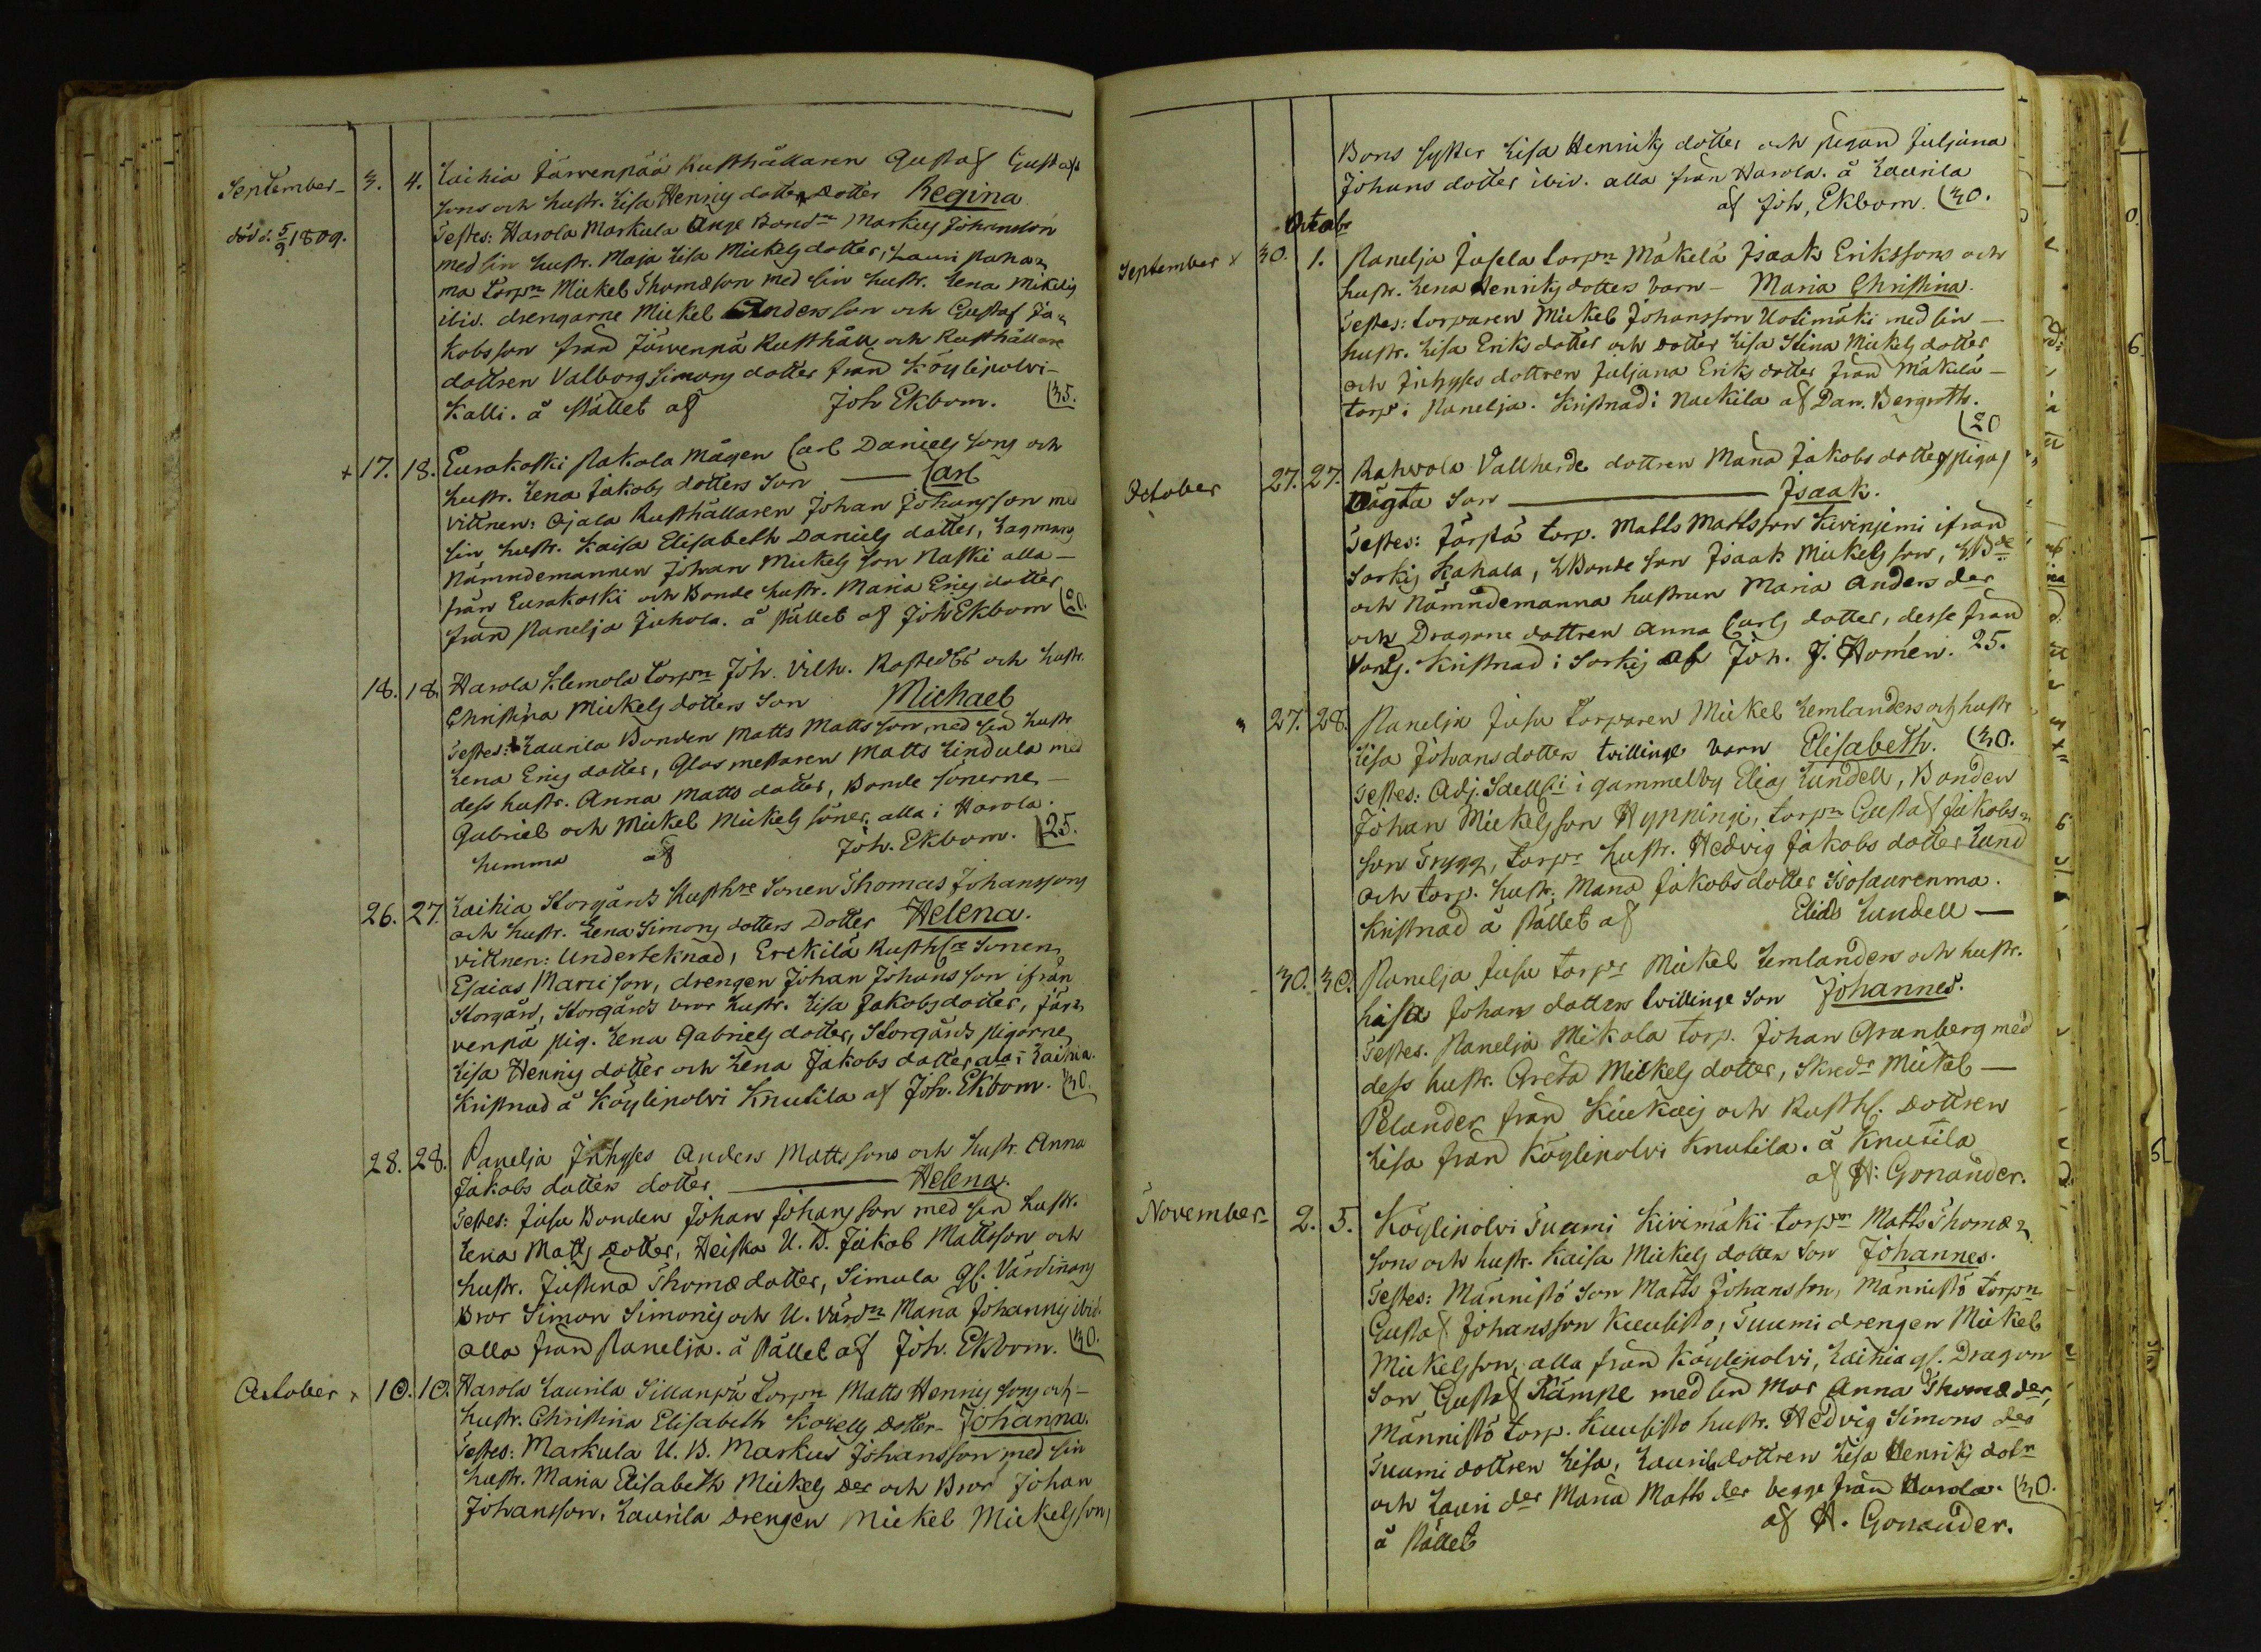 September 3. 4. Laihia Järvenpää Rusthållaren Gustaf Gustafs
sons och hustr. Lisa Henrigs dotters Dotter Regina
död d. 5/9 1809. Testes: Harola Markula Unge Bondn Markus Johansson
med sin hustr. Maja Lisa Mickelsdotter, Lauri
ma Torpn Mickel Thomæson med sin hustr. Lena Mickels
ibid. drengarne Mickel Andersson och Gustaf Ja=
kobsson från Järvenpä Rusthåll och Rusthållare
dottren Valborg Simons dotter från Köylipolvi
Kalli. å stället af Joh Ekbom. (35.
+ 17. 18. Eurakoski Pakola Mågen Carl Daniels sons och
hustr. Lena Jakobs dotters Son — Carl
Vittnen: Ojala Rusthållaren Johan Johansson med
sin hustr. Kaisa Elisabeth Daniels dotter, Lagmans
Nämndemannen Johan Mickels son Naski alla —
från Eurakoski och Bonde hustr. Maria Erics dotter
från Panelja Juhola. å stället af Joh Ekbom (20.
18. 18. Harola Klemola Torpn Joh. Vilh. Rostedts och hustr.
Christina Mickels dotters Son Michael
Testes: Laurila Bonden Matts Mattsson med sin hustr
Lena Erics dotter, Glasmestaren Matts Lindula med
dess hustr. Anna Matts dotter, Bonde sönerne —
Gabriel och Mickel Mickels söner, alla i Harola.
hemma af Joh. Ekbom. (25.
26. 27. Laihia Storgårds Rusthre Sonen Thomas Johanssons
och hustr. Lena Simons dotters Dotter Helena.
Vittnen: Underteknad, Erckilä Rusthre Sonen
Esaias Marcison, drengen Johan Johansson ifrån
Storgård, Storgårds bror hustr. Lisa Jakobsdotter, Jär=
venpä pig. Lena Gabriels dotter, Storgårds pigorne
Lisa Henrigs dotter och Lena Jakobs dotter alla i Laihia.
Kristnad å Köylipolvi Knutila af Joh. Ekbom. (30.
28. 28. Panelja Inhyses Anders Mattssons och hustr. Anna
Jakobs dotters dotter — Helena.
Testes: Jusu Bonden Johan Johansson med sin hustr.
Lena Matts dotter, Heiska U. B. Jakob Mattsson och
hustr. Justina Thomæ dotter, Simula gl. Värdinnans
Bror Simon Simonis och U. Värdn Maria Johannis ibid.
alla från Panelja. å stället af Joh. Ekbom. (30.
October + 10. 10. Harola Laurila Sillanpä Torpn Matts Henrigs sons och —
hustr. Christina Elisabeth Dotter — Johanna.
Testes: Markula U. B. Markus Johansson med sin
hustr. Maria Elisabeth Mickels Der och Bror Johan
Johansson, Laurila Drengen Mickel Mickelsson,
Bons syster Lisa Henriks dotter och pigan Juljana
Johans dotter ibid. alla från Harola. å Laurila
af Joh. Ekbom. (30.
Octobr
September + 30. 1. Panelja Jusela Torpn Mäkelä Isaak Erikssons och
hustr. Lena Henriks dotters barn — Maria Christina.
Testes: torparen Mickel Johansson Uotimäki med sin —
hustr. Lisa Eriks dotter och dotter Lisa Stina Mickels dotter
och Inhyses dottren Juljana Eriks dotter från Mäkilä —
torp i Panelja. Kristnad i Nackila af Dan. Bergroth.
(20
October 27. 27. Kahvola Vallherde dottren Maria Jakobs dotters piga
oägta Son — Isaak.
Testes: torp. Matts Mattsson Kivinjemi ifrån
Sorkis Kahala, LBonde Son Isaak Mickels son, LBde
och Nämndemanna hustrun Maria Anders der
och Dragone dottren Anna Carls dotter, desse från
Kristnad i Sorkis af Joh. J. Homén. 25.
" 27. 28. Panelja Jusu Torparen Mickel Lemlanders och hustr
Lisa Johansdotters tvillinge barn Elisabeth. (30.
Testes: Adj. i gammelby Elias Lundell, Bonden
Johan Mickelsson Hyppingi, torpn Gustaf Jakobs=
son Trygg, torps hustr. Hedvig Jakobs dotter Lund
och torp. hustr. Maria Jakobsdotter Isosaurenma.
Kristnad å stället af Elias Lundell —
30. 30. Panelja Jusu torps Mickel Lemlanders och hustr.
Lisa Johans dotters tvillinge Son Johannes.
Testes. Panelja Mikola torp. Johan Granberg med
dess hustr. Greta Mickels dotter, Skredr Mickel —
Pelander från Kiukais och Rusth. Dottren
Lisa från Köylipolvi Knutila. å Knutila
af H: Gonander.
November 2. 5. Köylipolvi Tuomi Kivimäki torpn Matts Thomæ=
sons och hustr. Kaisa Mickels dotters Son Johannes.
Testes: Männistö Son Matts Johansson, Männistö torpn
Gustaf Johansson Kuusisto, Tuomi drengen Mickel
Mickelsson, alla från Köylipolvi, Laihia gl. Dragon
Son Gustaf Kämpe med sin Mor Anna Thomæ der,
Männistö torp. Kuusisto hustr. Hedvig Simons der
Tuomi dottren Lisa, Laurila dottren Lisa Henriks dotr
och Lauri der Maria Matts der begge från Harola. (30.
å stället af H. Gonander.